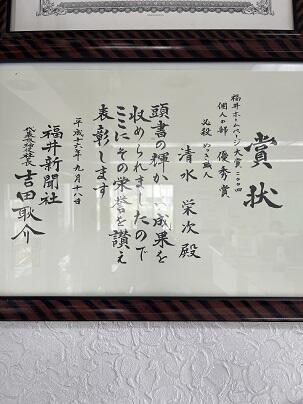 賞状
福井ホームページ大賞二〇〇四
個人の部 優秀賞
必殺 めっき職人
清水 栄次 殿
頭書の輝かしい成果を
収められましたので
ここにその栄誉を讃え
表彰します
平成十六年九月十八日
福井新聞社
代表取締役社長 吉田耿介